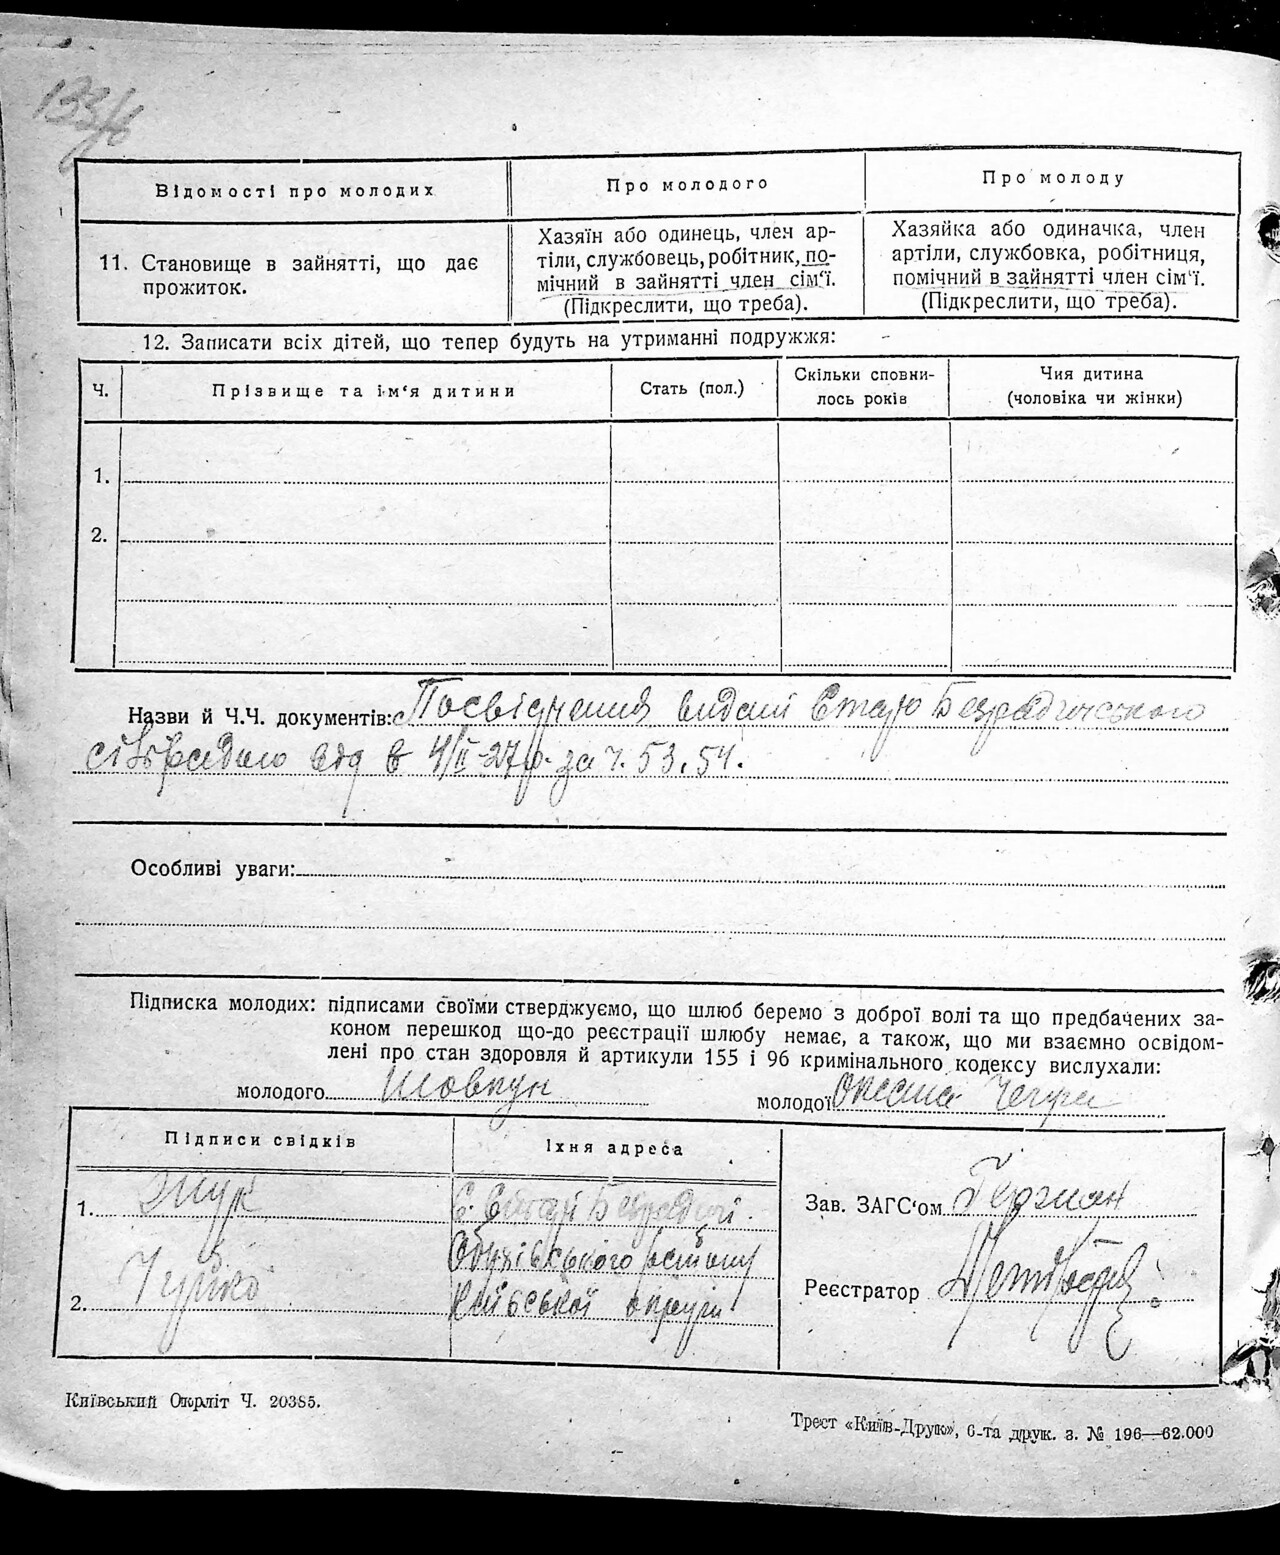 133/6
Відомості про молодих
Про молодого
Про молоду
11. Становище в зайнятті, що дає прожиток.
Хазяїн або одинець, член ар-
тіли, службовець, робітник, по-
мічний в зайнятті член сім'ї.
(Підкреслити, що треба).
Хазяйка або одиначка, член
артіли, службовка, робітниця,
помічний в зайнятті член сім'ї.
(Підкреслити, що треба).
12. Записати всіх дітей, що тепер будуть на утриманні подружжя:
Ч.
Прізвище та ім'я дитини
Стать (пол.)
Скільки сповни-
лось років
Чия дитина
(чоловіка чи жінки)
1.
2.
Назви й Ч.Ч. документів: Посвідчення видані Старо Безрадичською
сільрадою від 4/II-27р. за ч. 53, 54.
Особливі уваги:
Підписка молодих: підписами своїми стверджуємо, що шлюб беремо з доброї волі та що предбачених за-
коном перешкод що-до реєстрації шлюбу немає, а також, що ми взаємно освідом-
лені про стан здоровля й артикули 155 і 96 кримінального кодексу вислухали:
молодого Шовкун
молодої Оксана Чегура
Підписи свідків
Їхня адреса
1. Жук
С. Старі Безрадичі
Обухівського району
2. Чуйко
Київської округи
Зав. ЗАГС'ом Герман
Реєстратор
Київський Окрліт Ч. 20385.
Трест «Київ-Друк», 6-та друк. з. № 196—62.000